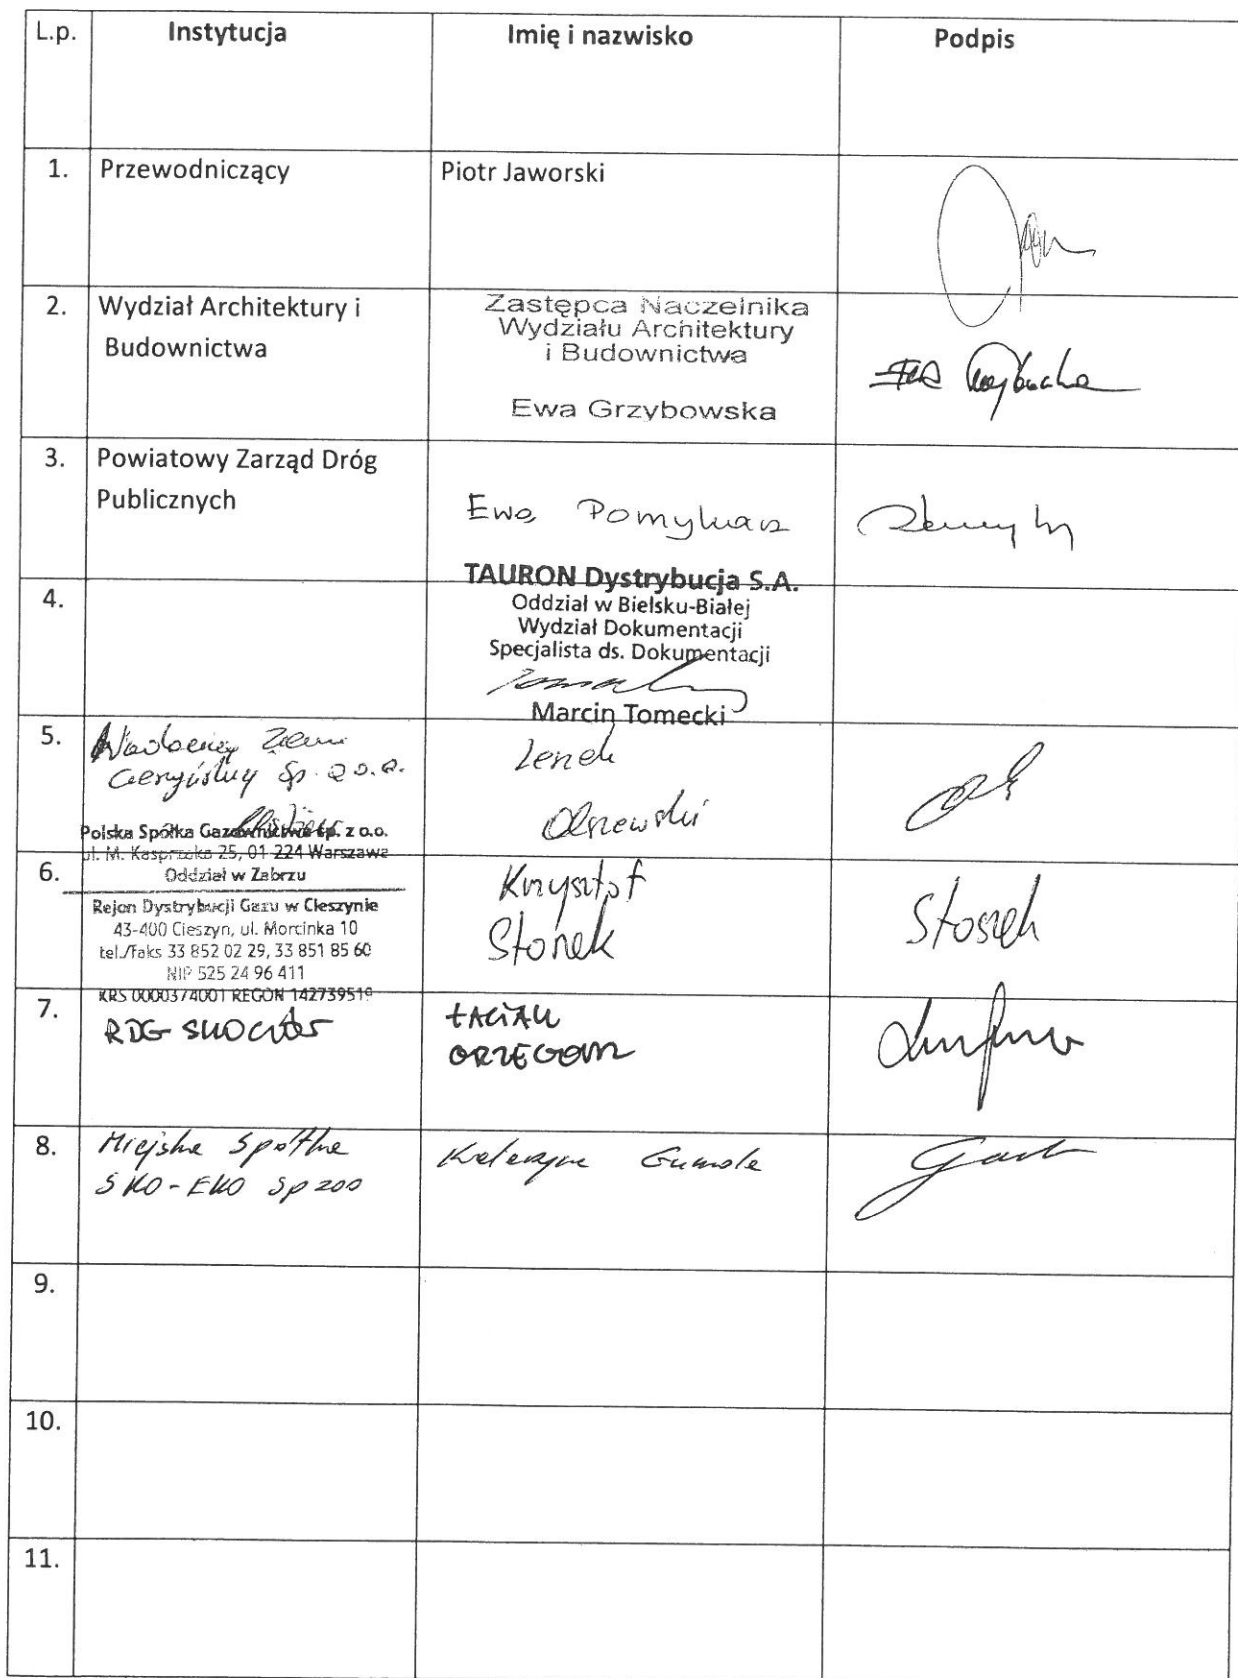 L.p. Instytucja Imię i nazwisko Podpis
1. Przewodniczący Piotr Jaworski
2. Wydział Architektury i
Budownictwa
Zastępca Naczelnika
Wydziału Architektury
i Budownictwa
Ewa Grzybowska
3. Powiatowy Zarząd Dróg
Publicznych
Ewa
4.
TAURON Dystrybucja S.A.
Oddział w Bielsku-Białej
Wydział Dokumentacji
Specjalista ds. Dokumentacji
Marcin Tomecki
5.
Ziemi
Sp. z o.o.
Olszewski
Polska Spółka Gazownictwa sp. z o.o.
ul. M. Kasprzaka 25, 01-224 Warszawa
Oddział w Zabrzu
6.
Rejon Dystrybucji Gazu w Cieszynie
43-400 Cieszyn, ul. Morcinka 10
tel./faks 33 852 02 29, 33 851 85 60
NIP 525 24 96 411
KRS 0000374001 REGON 142739519
Krzysztof
Stoszek
Stoszek
7.
RDG
8. Miejska Spółka
SKO-EKO Sp zoo
Katarzyna
9.
10.
11.